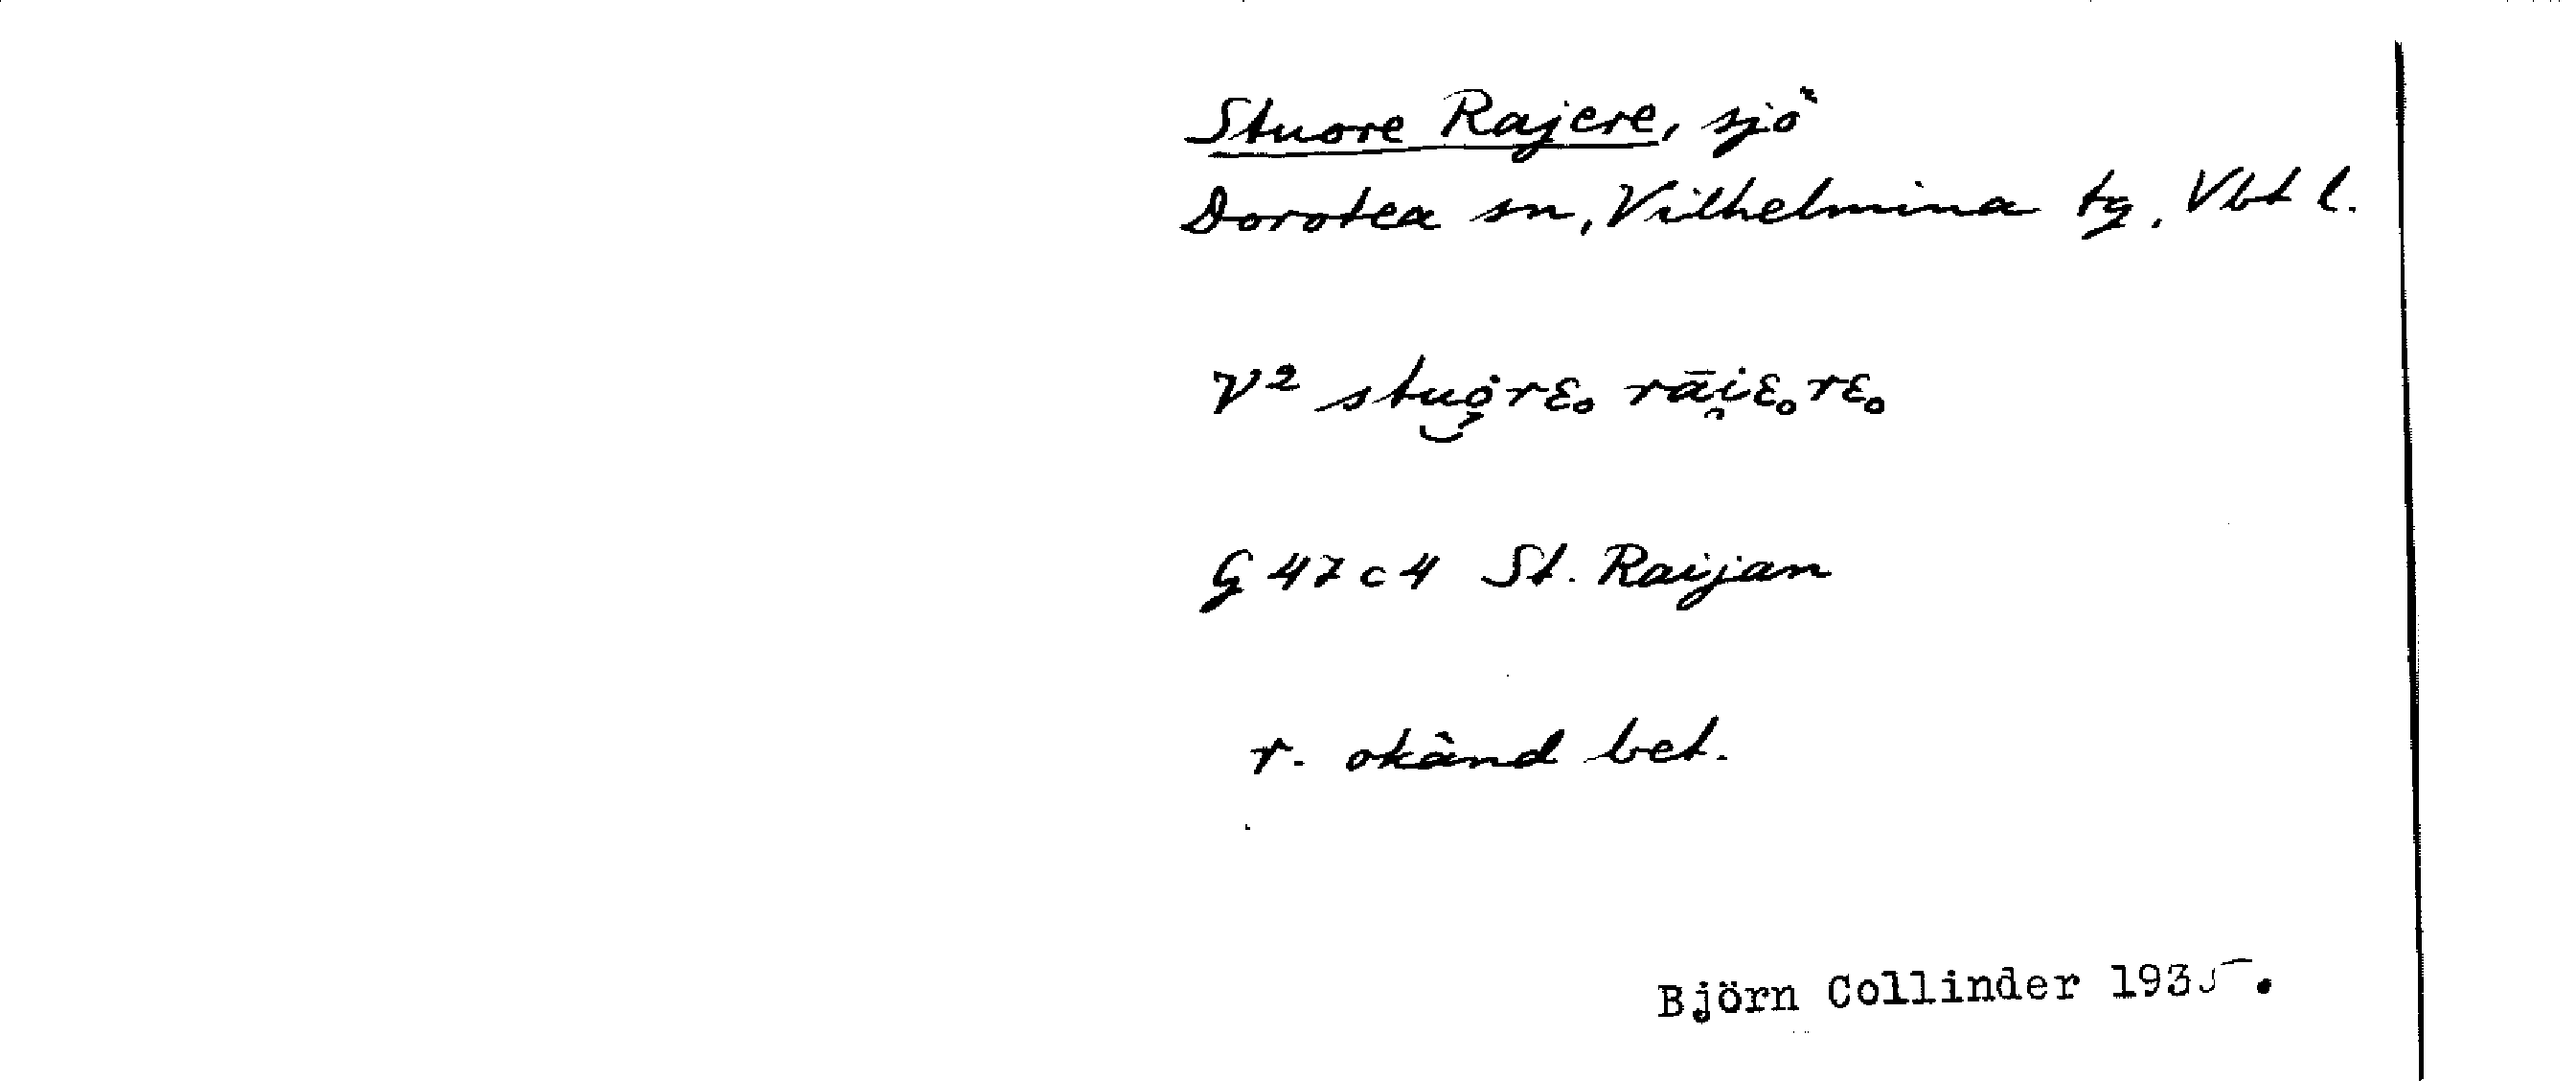 Stuore Rajere, sjö
Dorotea sn, Vilhelmina tg, Vbt l.
V² stuo̯rɛ₀ rāi̯ɛ₀rɛ₀
G 47 c 4 St. Raijan
r. okänd bet.
Björn Collinder 1935.